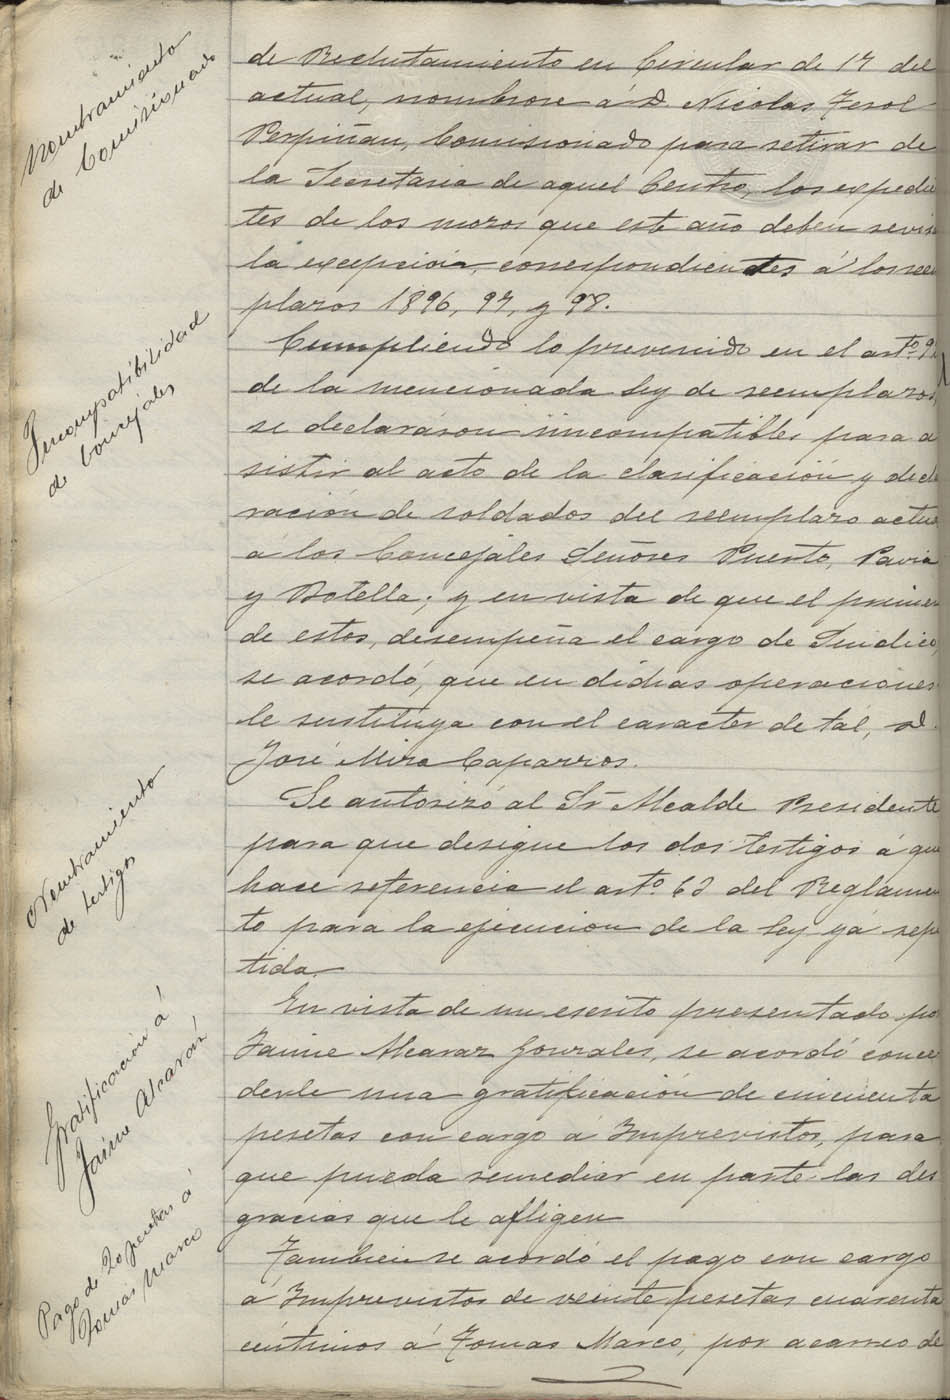 Nombramiento
de Comisionado
de Reclutamiento en Circular de 17 del
actual, nombrose á D. Nicolas Ferol
Perpiñan, Comisionado para retirar de
la Secretaria de aquel Centro, los expedie
tes de los mozos que este año deben revis
la excepción, correspondientes á los ree
plazos 1896, 97, y 98.
Incompatibilidad
de Concejales
Cumpliendo lo prevenido en el artº. 9
de la mencionada ley de reemplazos,
se declararon incompatibles para a
sistir al acto de la clasificación y decla
ración de soldados del reemplazo actua
á los Concejales Señores Puerto, Pavia
y Botella; y en vista de que el primer
de estos, desempeña el cargo de Sindico,
se acordó, que en dichas operaciones
le sustituya con el caracter de tál, D.
José Mira Caparros.
Nombramiento
de testigos
Se autorizó al Sr Alcalde Presidente
para que desigue los dos testigos á que
hace referencia el artº. 62 del Reglame
to para la ejecucion de la ley yá repe
tida.
Gratificación á
Jaime Alcaráz
En vista de un escrito presentado po
Jaime Alcaraz Gonzales, se acordó conce
derle una gratificación de cincuenta
pesetas con cargo á Imprevistos, para
que pueda remediar en parte las des
gracias que le afligen
Pago de 20 pesetas á
Tomas Marco
Tambien se acordó el pago con cargo
á Imprevistos de veinte pesetas cuarenta
céntimos á Tomas Marco, por acarreo de